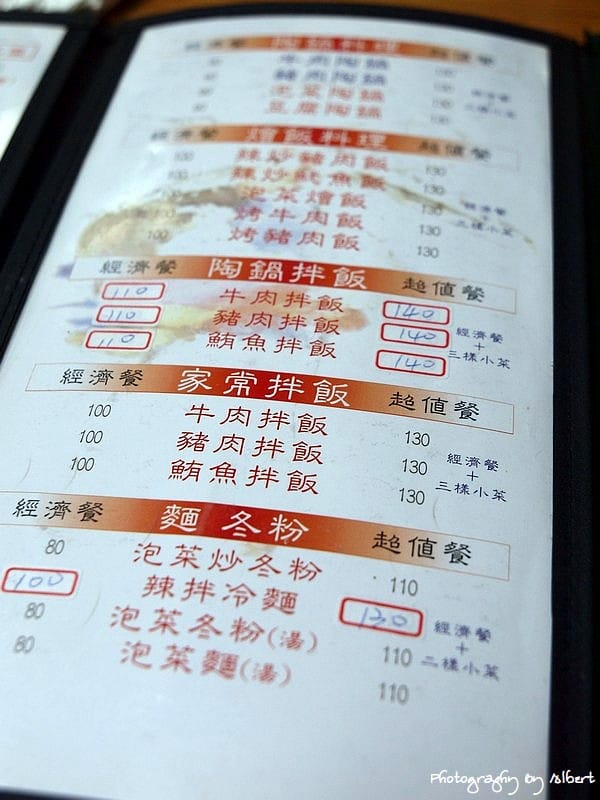 經濟餐 陶鍋料理 超值餐
牛肉陶鍋 130
豬肉陶鍋 130
泡菜陶鍋 130 經濟餐
豆腐陶鍋 130 二樣小菜
經濟餐 燴飯料理 超值餐
100 辣炒豬肉飯 130
100 辣炒魷魚飯 130
100 泡菜燴飯 130 經濟餐
100 烤牛肉飯 130 + 三樣小菜
100 烤豬肉飯 130
經濟餐 陶鍋拌飯 超值餐
110 牛肉拌飯 140
110 豬肉拌飯 140 經濟餐 + 三樣小菜
110 鮪魚拌飯 140
經濟餐 家常拌飯 超值餐
100 牛肉拌飯 130
100 豬肉拌飯 130 經濟餐 + 三樣小菜
100 鮪魚拌飯 130
經濟餐 麵 冬粉 超值餐
80 泡菜炒冬粉 110
100 辣拌冷麵 130
80 泡菜冬粉(湯) 110 經濟餐 + 二樣小菜
80 泡菜麵(湯) 110
Photography by Albert